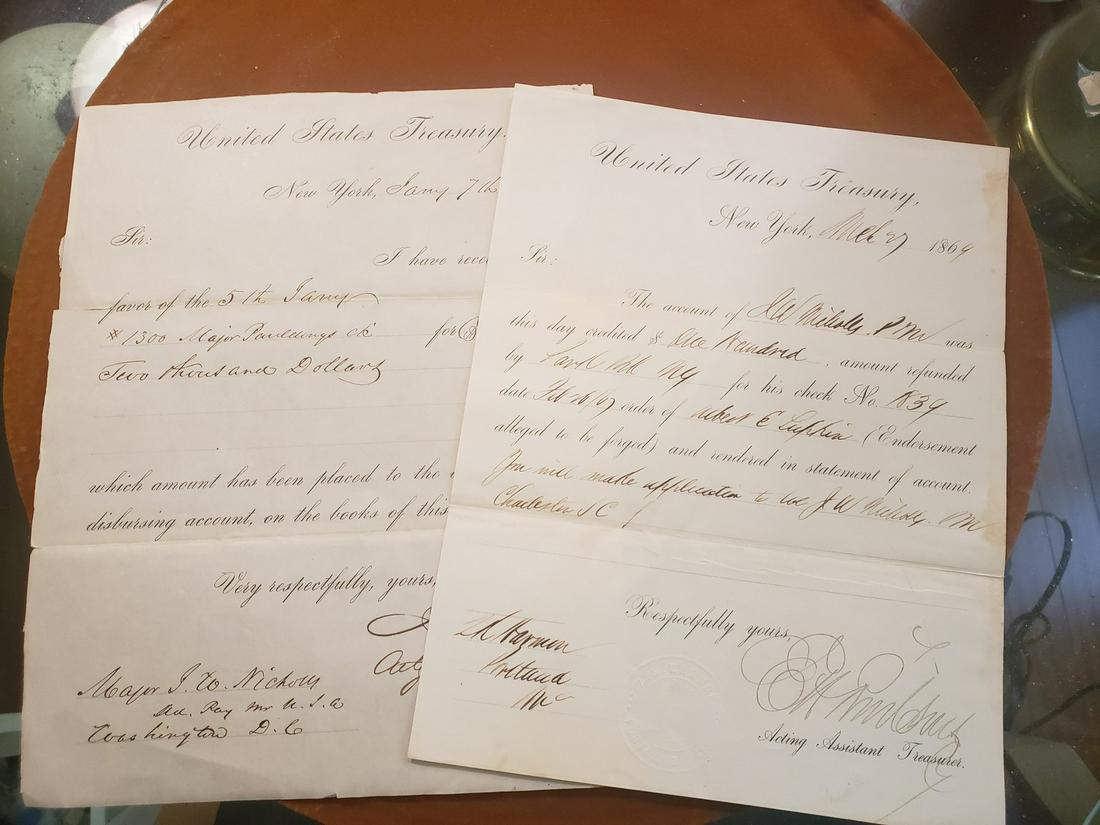 United States Treasury,
New York, Jany 7th
Sir:
I have rece
favor of the 5th Jany
$1300 Major Pauldings ck for
Two thousand Dollars
which amount has been placed to the
disbursing account, on the books of this
Very respectfully, yours,
Major J. W. Nicholls
Ad. Pay Mr U.S.A
Washington D.C
United States Treasury,
New York, 27 1869
Sir:
The account of J W Nicholls PM was
this day credited $ One Hundred, amount refunded
by Bk NY for his check No. 1839
date Feb 26/67 order of Albert E Lufkin (Endorsement
alleged to be forged) and rendered in statement of account.
You will make application to J W Nicholls PM
Charleston SC
Respectfully yours,
Harmon
Portland
Me
Acting Assistant Treasurer.